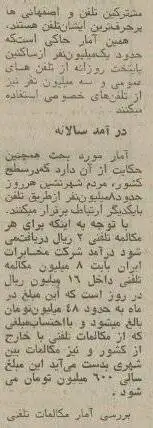 مشترکین تلفن و اصفهانی ها
پرحرف‌ترین ایشان‌تلفن هستند.
همین آمار حاکی است‌که
حدود یک‌میلیون‌نفر ازساکنین
پایتخت روزانه از تلفن های
عمومی و سه میلیون نفر نیز
از تلفن‌های خصوصی استفاده
میکنند
در آمد سالانه
آمار مورد بحث همچنین
حکایت از آن دارد که‌درسطح
کشور، مردم شهرنشین هرروز
حدود ۸میلیون‌نفر ازطریق تلفن
بایکدیگر ارتباط برقرار میکنند.
با توجه به اینکه برای هر
مکالمه تلفنی ۲ ریال دریافت‌می
شود درآمد شرکت مخابرات
ایران بابت ۸ میلیون مکالمه
تلفنی داخل ۱۶ میلیون ریال
در روز است که این مبلغ در
ماه به حدود ۴۸ میلیون‌تومان
بالغ میشود و بااحتساب‌مبلغی
که از مکالمات تلفنی با خارج
از کشور و نیز مکالمات بین
شهری بدست می‌آید این مبلغ
سالی ۶۰۰ میلیون تومان می
شود.
بررسی آمار مکالمات تلفنی